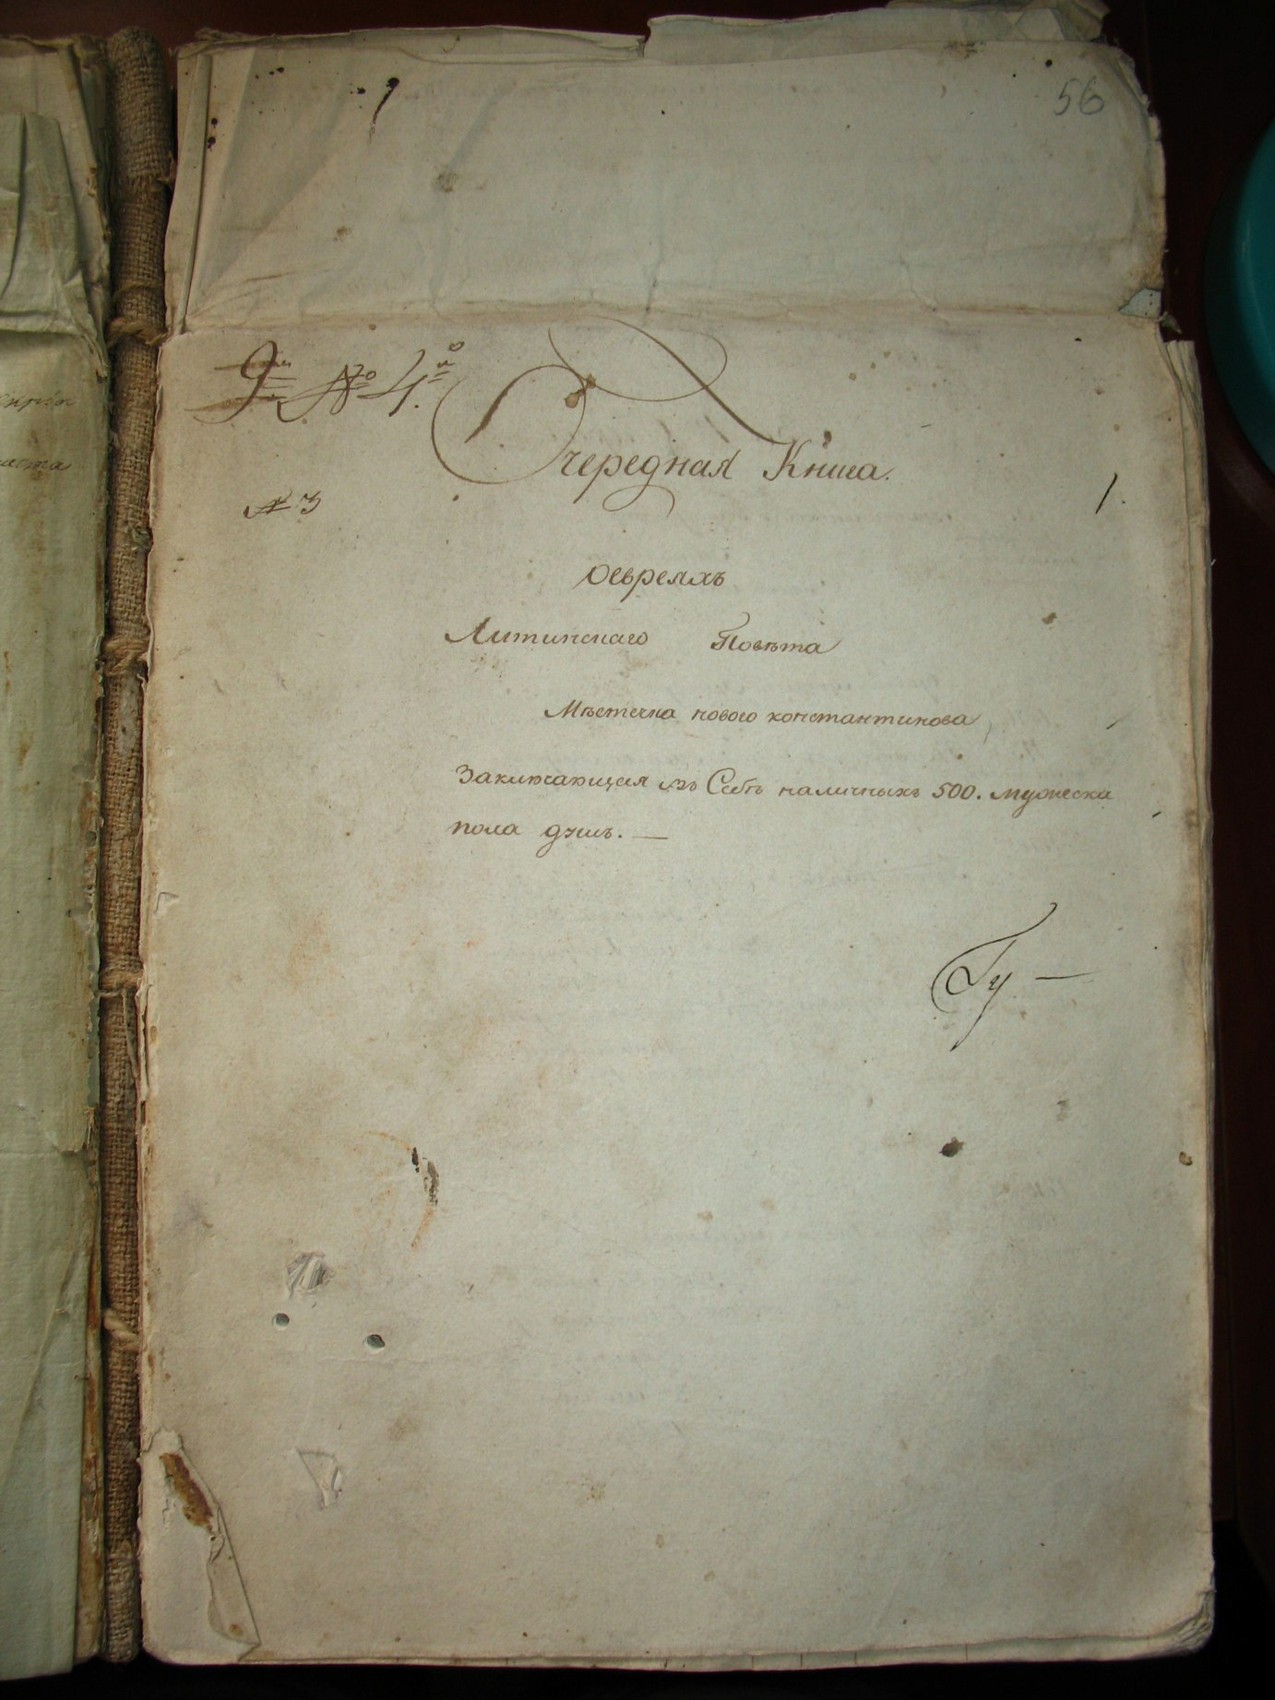 56
№ 4.
Очередная Книга.
№ 3
1.
Оевреяхъ
Литинскаго Повѣта
Мѣстечка нового константинова
Заключающая въ Себѣ наличныхъ 500. мужеска
пола душъ. —